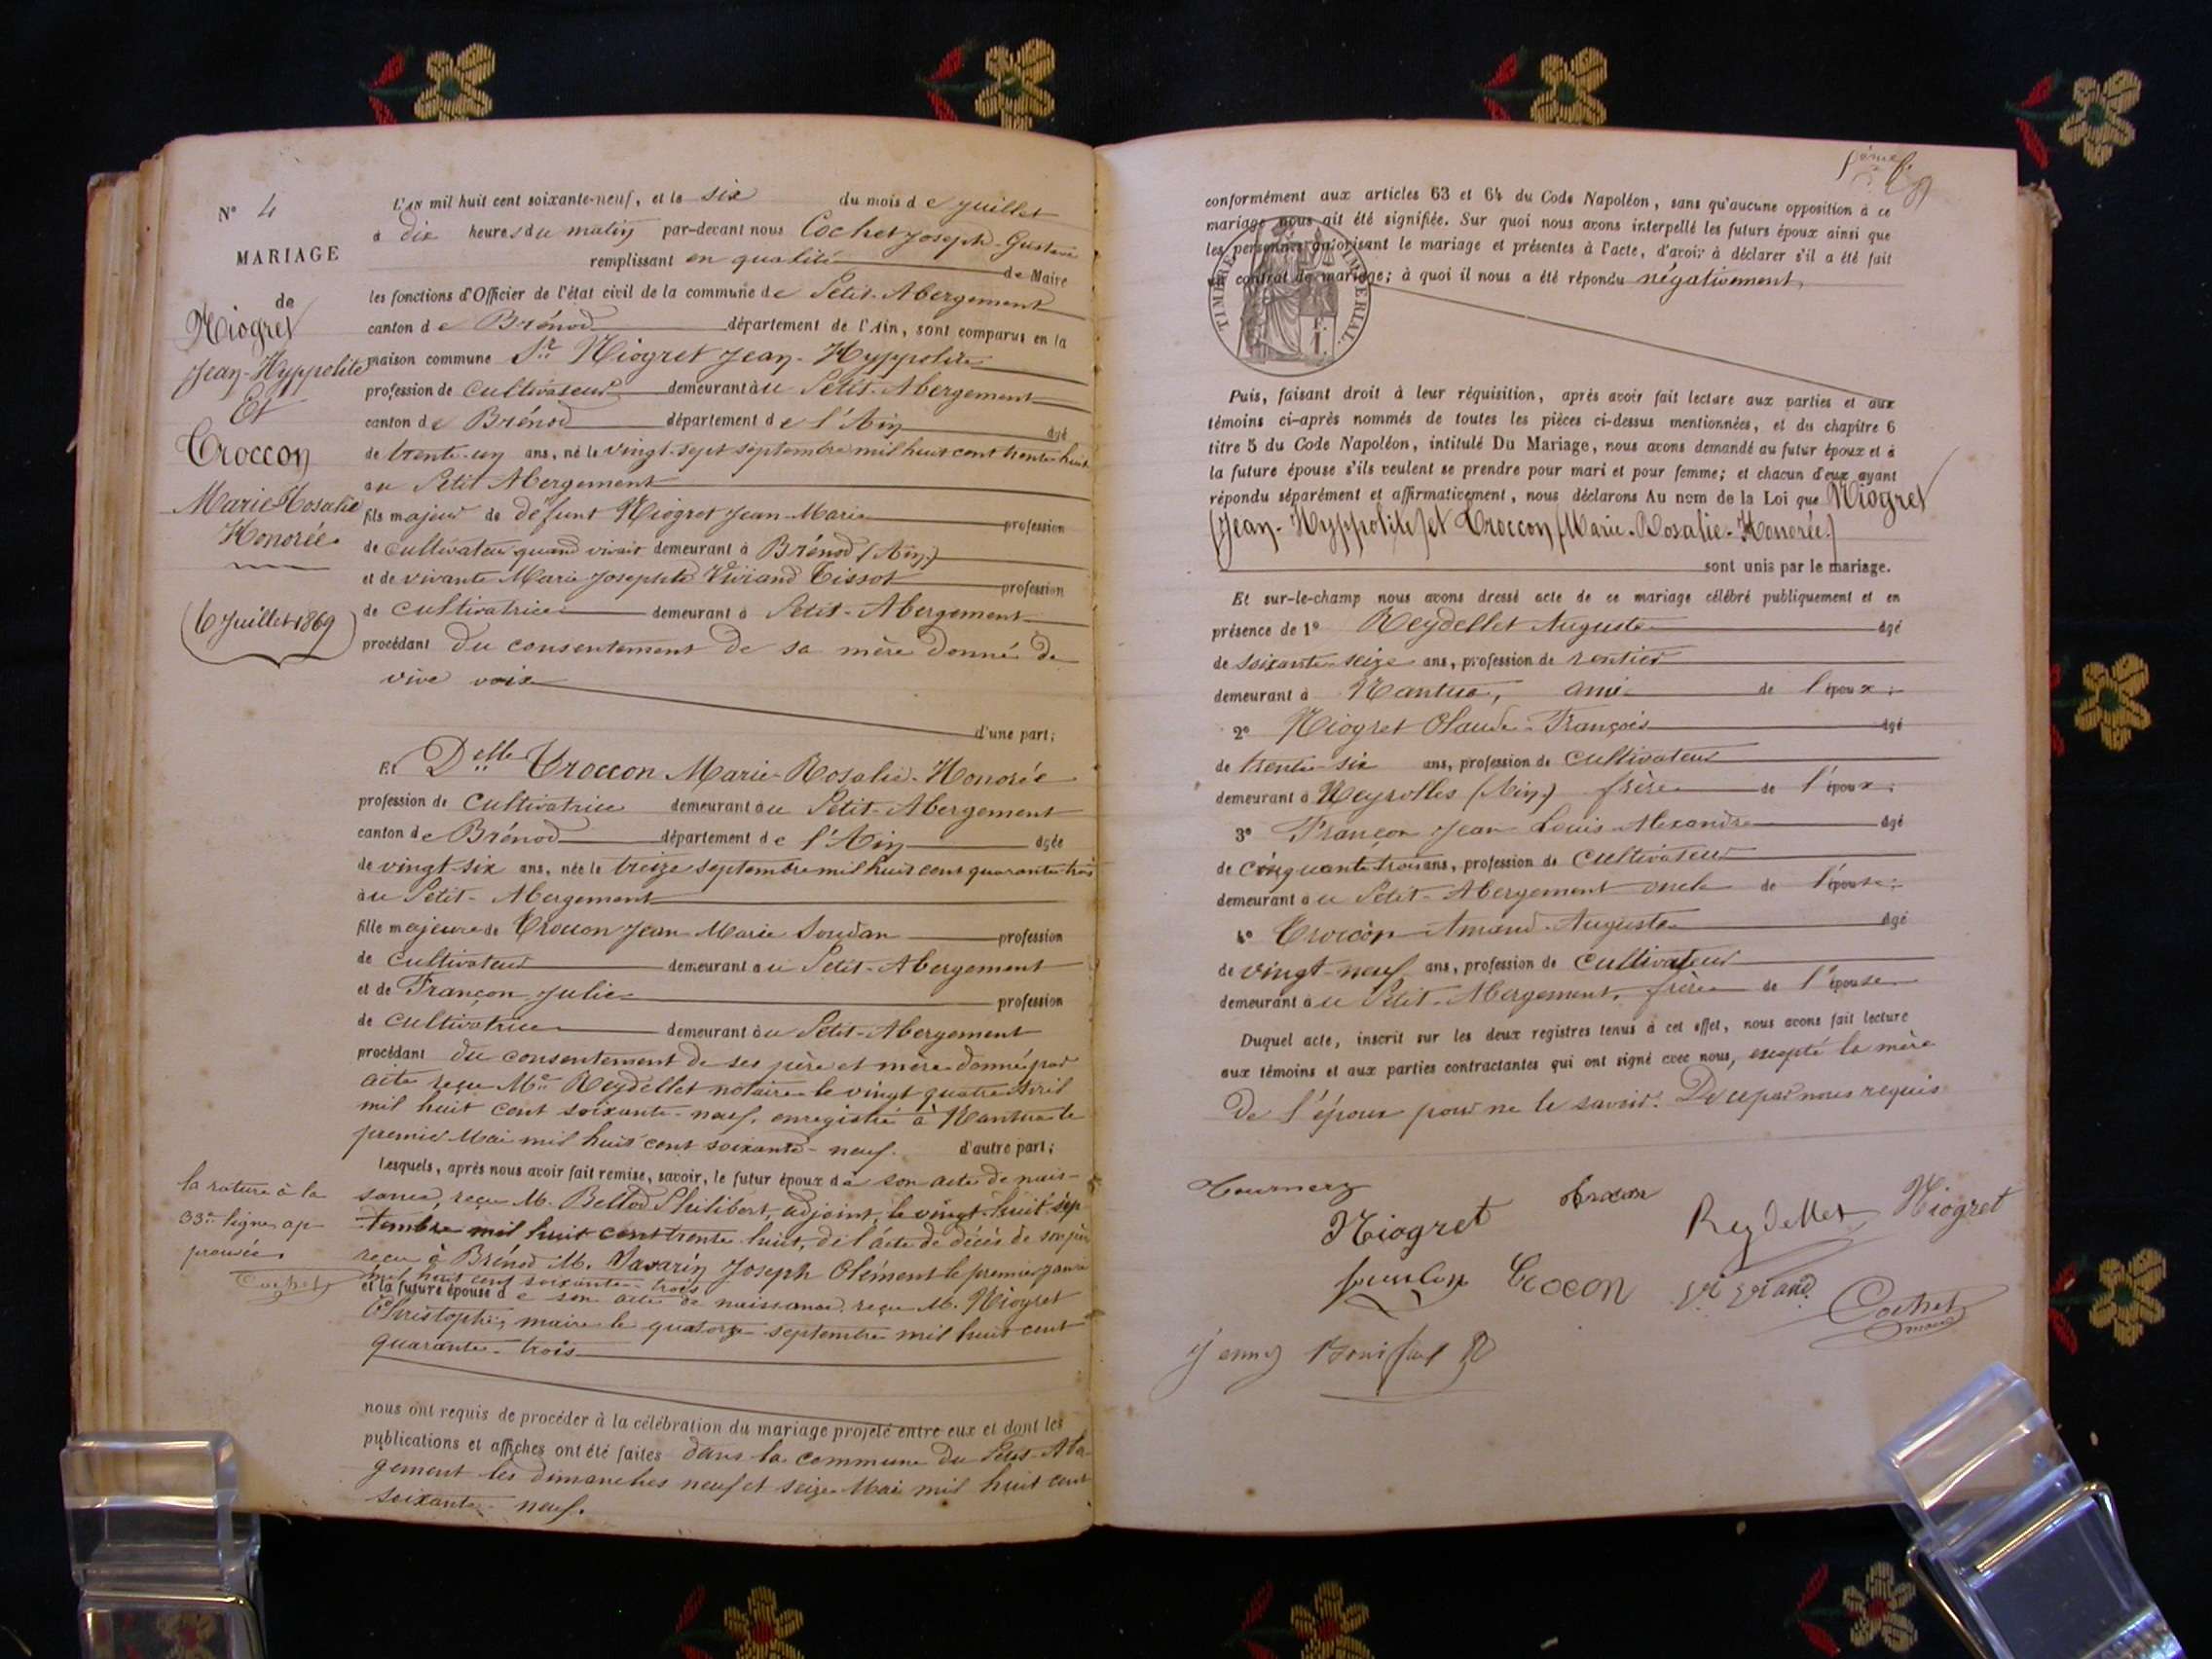 N° 4
MARIAGE
de
Niogret
Jean-Hyppolite
Et
Croccon
Marie-Rosalie
Honorée
(6 Juillet 1869)
L'AN mil huit cent soixante-neuf, et le six du mois de Juillet
à dix heures du matin par-devant nous Cochet Joseph-Gustave
remplissant en qualité de Maire
les fonctions d'Officier de l'état civil de la commune de Petit-Abergement
canton de Brénod département de l'Ain, sont comparus en la
maison commune Sr Niogret Jean-Hyppolite
profession de cultivateur demeurant au Petit-Abergement
canton de Brénod département de l'Ain âgé
de trente-un ans, né le vingt-sept septembre mil huit cent trente huit
au Petit Abergement
fils majeur de défunt Niogret Jean-Marie profession
de cultivateur quand vivait demeurant à Brénod (Ain)
et de vivante Marie Josephte Viviand Tissot profession
de cultivatrice demeurant à Petit-Abergement
procédant du consentement de sa mère donné de
vive voix
d'une part;
Et Delle Croccon Marie-Rosalie-Honorée
profession de cultivatrice demeurant au Petit-Abergement
canton de Brénod département de l'Ain âgée
de vingt-six ans, née le treize septembre mil huit cent quarante trois
au Petit-Abergement
fille majeure de Croccon Jean Marie Soudan profession
de cultivateur demeurant au Petit-Abergement
et de Françon Julie profession
de cultivatrice demeurant au Petit-Abergement
procédant du consentement de ses père et mère donné par
acte reçu Me Reydellet notaire le vingt quatre Avril
mil huit cent soixante-neuf, enregistré à Nantua le
premier Mai mil huit cent soixante-neuf. d'autre part;
Lesquels, après nous avoir fait remise, savoir, le futur époux de son acte de nais-
sance, reçu M. Bellod Philibert, adjoint, le vingt-huit sep
tembre mil huit cent trente huit, de l'acte de décès de son père
reçu à Brénod M. Savarin Joseph Clément le premier janvier
mil huit cent soixante-trois
et la future épouse de son acte de naissance reçu M. Niogret
Christophe, maire le quatorze septembre mil huit cent
quarante-trois
la rature à la
33e ligne ap-
prouvée.
Cochet
nous ont requis de procéder à la célébration du mariage projeté entre eux et dont les
publications et affiches ont été faites dans la commune du Petit-Aber
gement les dimanches neuf et seize Mai mil huit cent
soixante-neuf.
conformément aux articles 63 et 64 du Code Napoléon, sans qu'aucune opposition à ce
mariage nous ait été signifiée. Sur quoi nous avons interpellé les futurs époux ainsi que
les personnes autorisant le mariage et présentes à l'acte, d'avoir à déclarer s'il a été fait
un contrat de mariage; à quoi il nous a été répondu négativement,
TIMBRE IMPERIAL.
Puis, faisant droit à leur réquisition, après avoir fait lecture aux parties et aux
témoins ci-après nommés de toutes les pièces ci-dessus mentionnées, et du chapitre 6
titre 5 du Code Napoléon, intitulé Du Mariage, nous avons demandé au futur époux et à
la future épouse s'ils veulent se prendre pour mari et pour femme; et chacun d'eux ayant
répondu séparément et affirmativement, nous déclarons Au nom de la Loi que Niogret
(Jean-Hyppolite) et Croccon (Marie-Rosalie-Honorée)
sont unis par le mariage.
Et sur-le-champ nous avons dressé acte de ce mariage célébré publiquement et en
présence de 1° Reydellet Auguste âgé
de soixante-seize ans, profession de rentier
demeurant à Nantua, ami de l'époux;
2° Niogret Claude-François âgé
de trente-six ans, profession de cultivateur
demeurant à Neyrolles (Ain) frère de l'époux;
3° Françon Jean Louis Alexandre âgé
de cinquante trois ans, profession de cultivateur
demeurant au Petit-Abergement oncle de l'épouse;
4° Croccon Amand-Auguste âgé
de vingt-neuf ans, profession de cultivateur
demeurant au Petit-Abergement, frère de l'épouse
Duquel acte, inscrit sur les deux registres tenus à cet effet, nous avons fait lecture
aux témoins et aux parties contractantes qui ont signé avec nous, excepté la mère
de l'époux pour ne le savoir. De ce par nous requis
Niogret
Reydellet
Niogret
Crocon
Cochet
maire